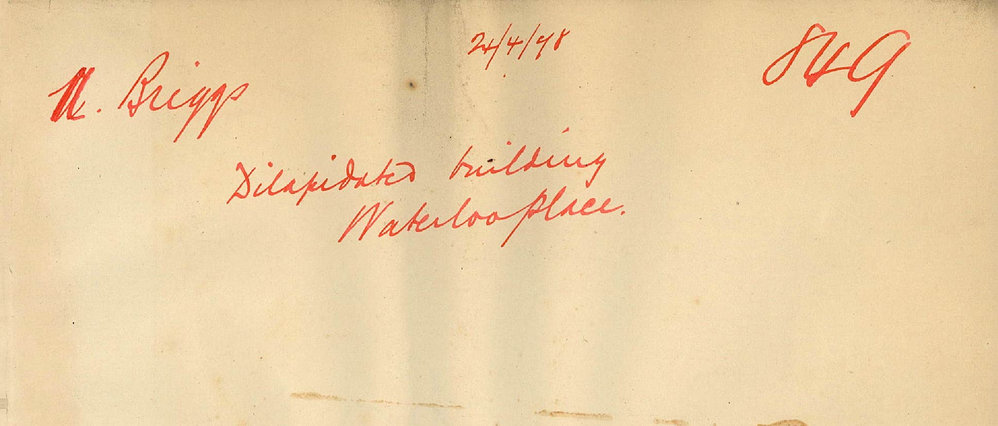 21/4/98
849
Briggs
Dilapidated building
Waterloo Place.